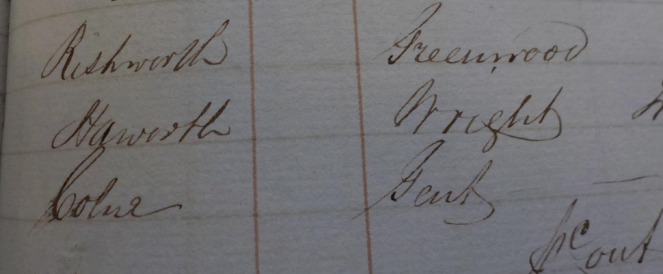 Rishworth Greenwood
Haworth Wright
Colne Gent
out